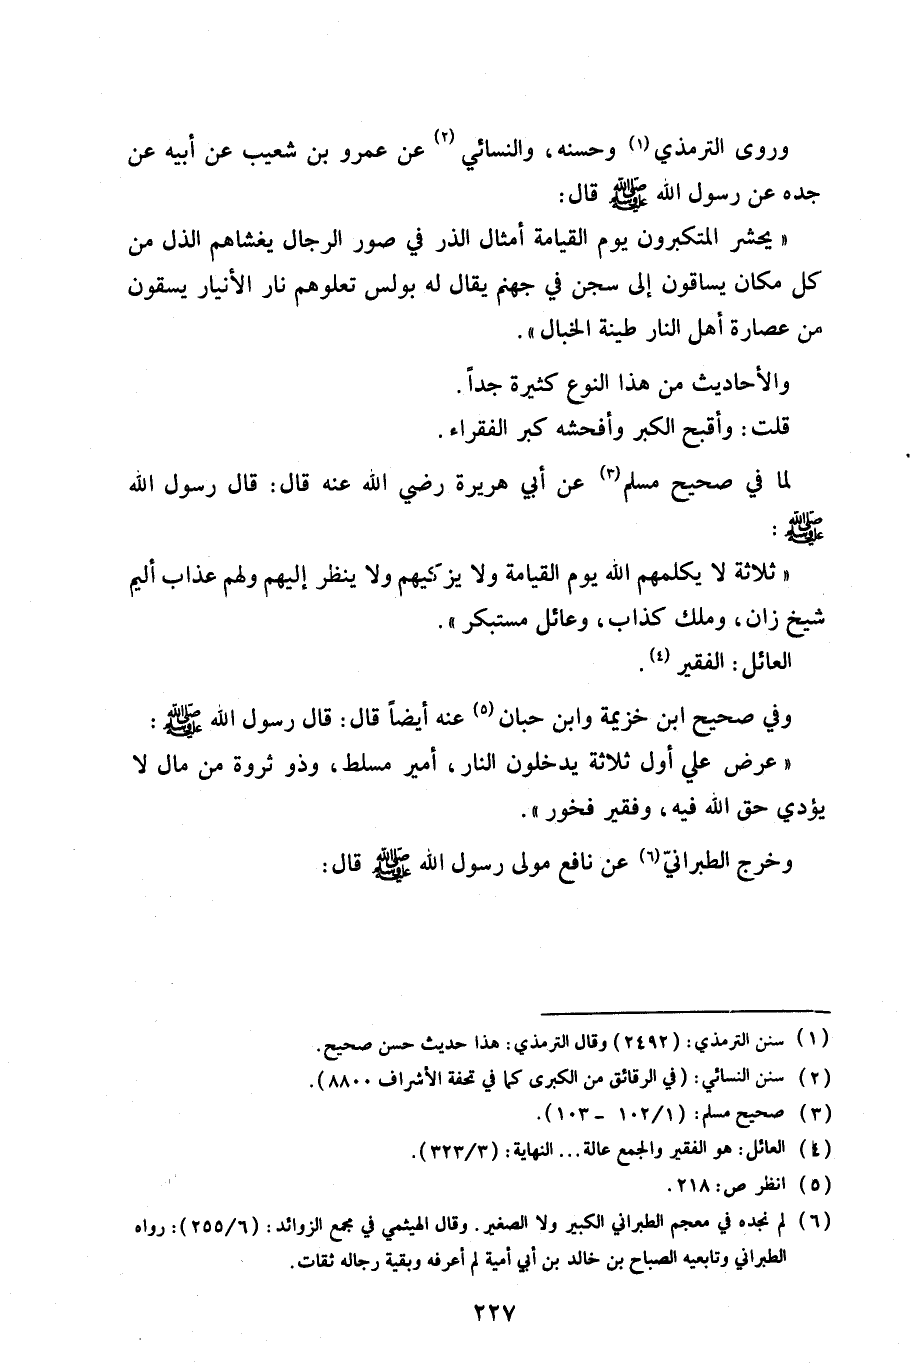 وروى الترمذي(١) وحسنه، والنسائي(٢) عن عمرو بن شعيب عن أبيه عن
جده عن رسول الله ﷺ قال:
« يحشر المتكبرون يوم القيامة أمثال الذر في صور الرجال يغشاهم الذل من
كل مكان يساقون إلى سجن في جهنم يقال له بولس تعلوهم نار الأنيار يسقون
من عصارة أهل النار طينة الخبال ».
والأحاديث من هذا النوع كثيرة جداً.
قلت: وأقبح الكبر وأفحشه كبر الفقراء.
لما في صحيح مسلم(٣) عن أبي هريرة رضي الله عنه قال: قال رسول الله
ﷺ :
« ثلاثة لا يكلمهم الله يوم القيامة ولا يزكيهم ولا ينظر إليهم ولهم عذاب أليم
شيخ زان، وملك كذاب، وعائل مستبكر ».
العائل: الفقير(٤).
وفي صحيح ابن خزيمة وابن حبان(٥) عنه أيضاً قال: قال رسول الله ﷺ :
« عرض علي أول ثلاثة يدخلون النار، أمير مسلط، وذو ثروة من مال لا
يؤدي حق الله فيه، وفقير فخور ».
وخرج الطبرانيّ(٦) عن نافع مولى رسول الله ﷺ قال:
(١) سنن الترمذي: (٢٤٩٢) وقال الترمذي: هذا حديث حسن صحيح.
(٢) سنن النسائي: (في الرقائق من الكبرى كما في تحفة الأشراف ٨٨٠٠).
(٣) صحيح مسلم: (١٠٢/١ - ١٠٣).
(٤) العائل: هو الفقير والجمع عالة... النهاية: (٣٢٣/٣).
(٥) انظر ص: ٢١٨.
(٦) لم نجده في معجم الطبراني الكبير ولا الصغير. وقال الهيثمي في مجمع الزوائد: (٢٥٥/٦): رواه
الطبراني وتابعيه الصباح بن خالد بن أبي أمية لم أعرفه وبقية رجاله ثقات.
٢٢٧